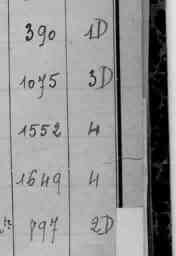 390 1D
1075 3D
1552 4
1649 4
797 2D